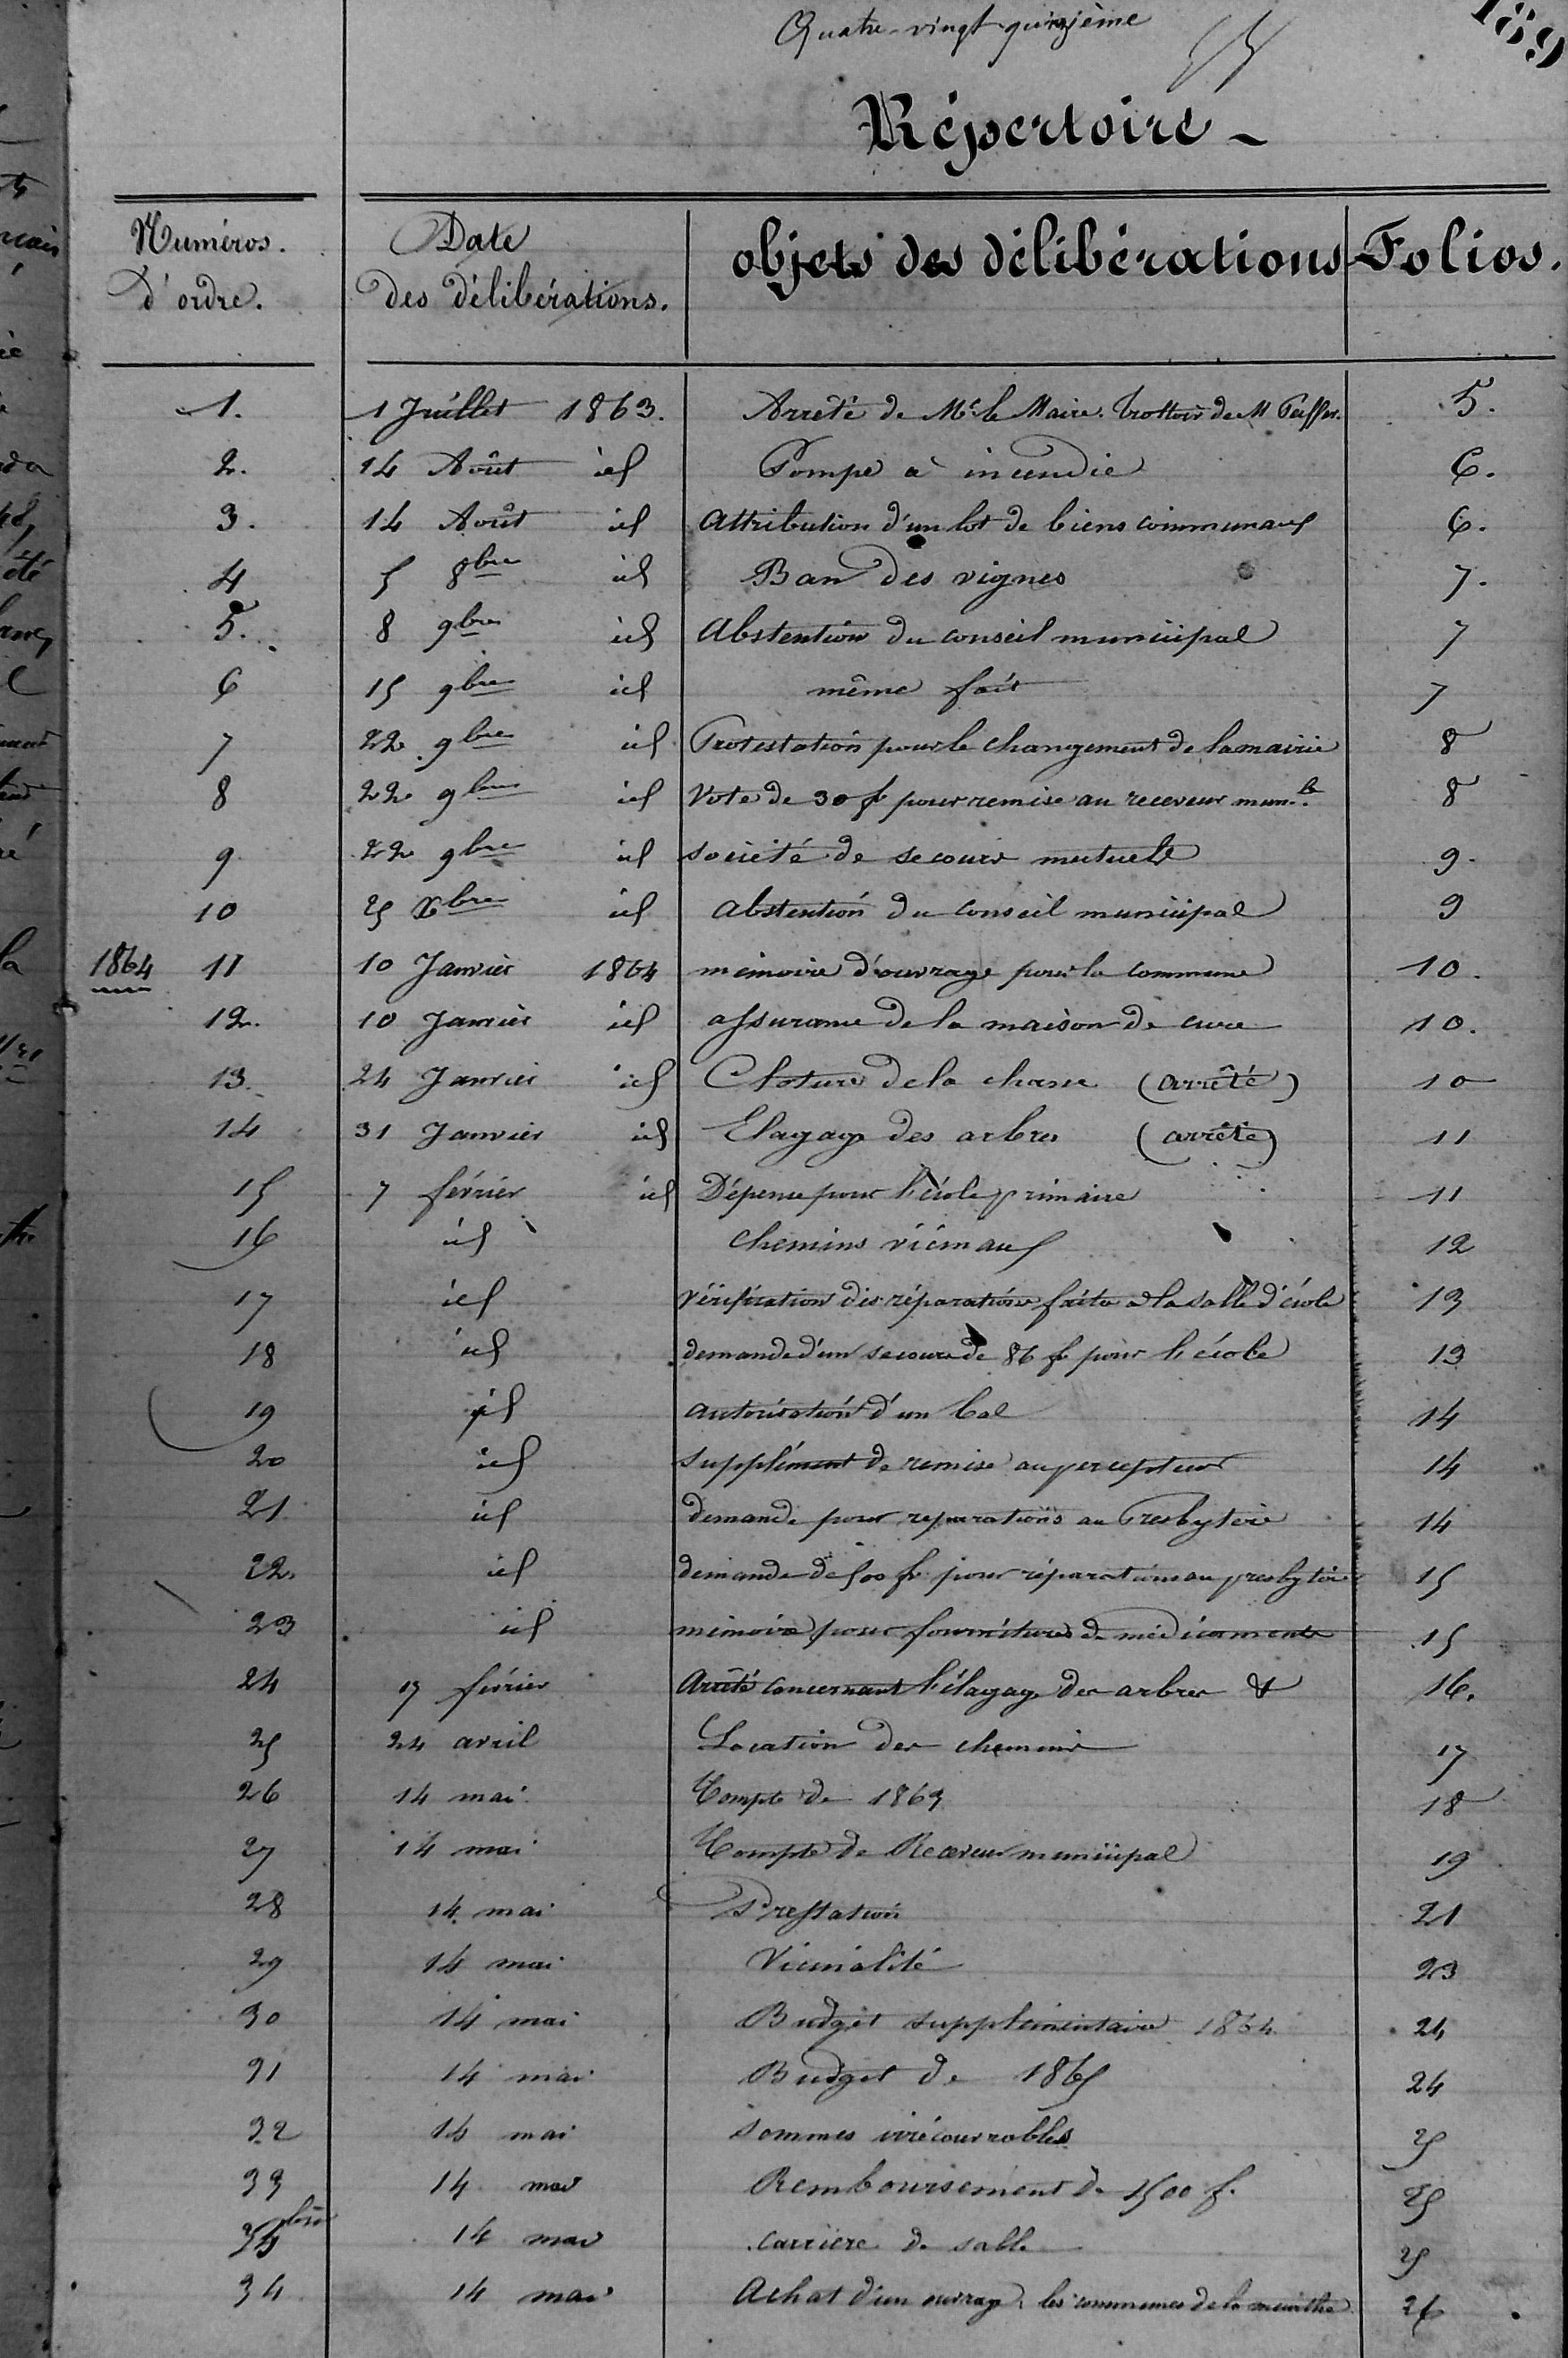 Quatre-vingt-quinzième
189
Répertoire -
Numéros. d'ordre. Date des délibérations. objets des délibérations Folios.
1. 1 Juillet 1863. Arrêté de Mr le Maire. Trottoir de M 5.
2. 14 Août id Pompe à incendie 6.
3. 14 Août id Attribution d'un lot de biens communaux 6.
4 5 8bre id Ban des vignes 7.
5. 8 9bre id Abstention du conseil municipal 7
6 15 9bre id même fait 7
7 22 9bre id Protestation pour le changement de la mairie 8
8 22 9bre id Vote de 30 f pour remise au receveur mun.l 8
9 22 9bre id société de secours mutuels 9.
10 25 Xbre id abstention du conseil municipal 9
1864 11 10 Janvier 1864 mémoire d'ouvrage pour la commune 10.
12. 10 Janvier id assurance de la maison de cure 10.
13. 24 Janvier id Cloture de la chasse (arrêté) 10
14 31 Janvier id Elagage des arbres (arrêté) 11
15 7 février id Dépense pour l'école primaire 11
16 id chemins vicinaux 12
17 id vérification des réparations faites à la salle d'école 13
18 id demande d'un secours de 86 f pour l'école 13
19 id autorisation d'un bal 14
20 id supplément de remise au percepteur 14
21 id demande pour reparations au Presbytère 14
22. id demande de 500 fr pour réparations au presbytère 15
23 id mémoire pour fournitures de médicaments 15
24 17 février Arrêté concernant l'élagage des arbres & 16.
25 24 avril Location des chemins 17
26 14 mai Compte de 1863 18
27 14 mai Compte de Receveur municipal 19
28 14 mai Prestation 21
29 14 mai Vicinalité 23
30 14 mai Budget supplémentaire 1864 24
31 14 mai Budget de 1865 24
32 14 mai sommes irrécouvrables 25
33 14 mai Remboursement de 1500 f. 25
14 mai carrière de sable 25
34 14 mai Achat d'un ouvrage les communes de la meurthe 26